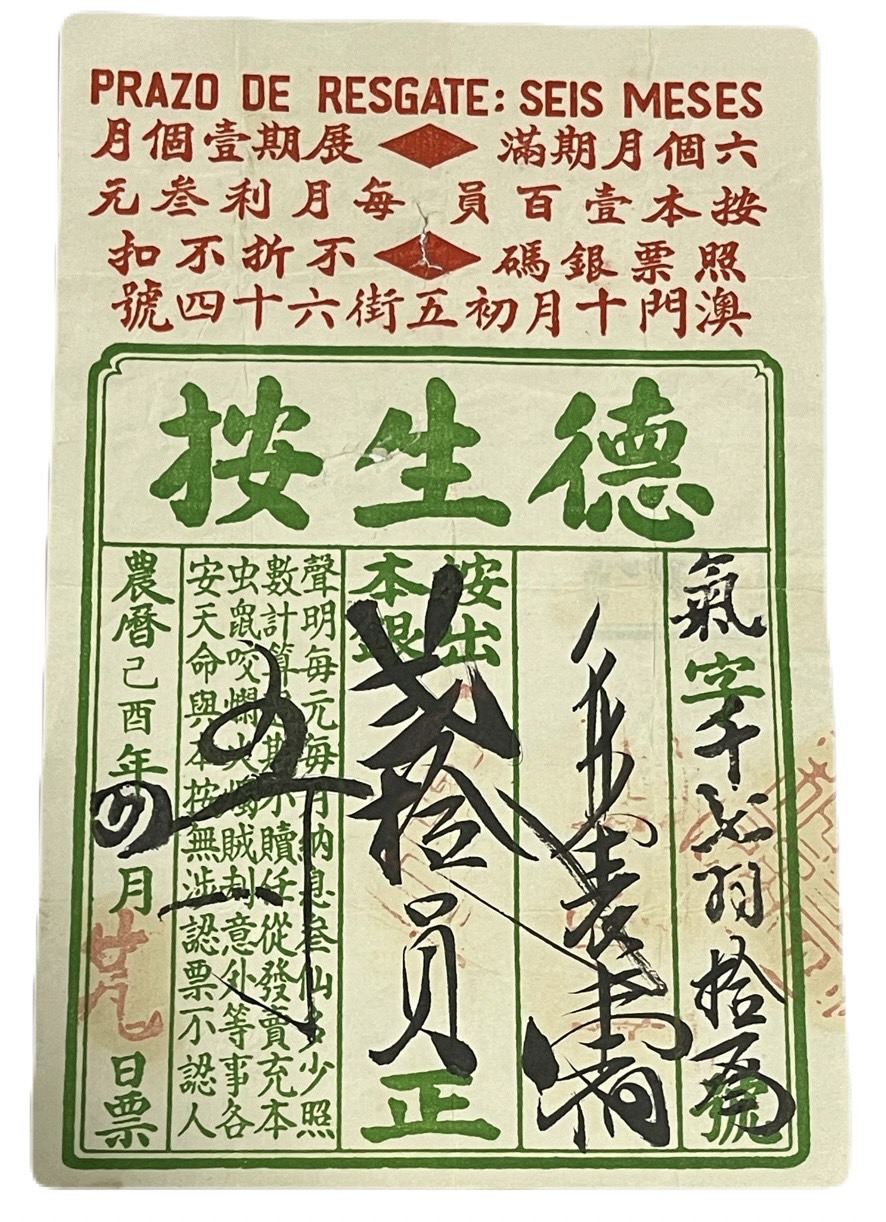 PRAZO DE RESGATE: SEIS MESES
六個月期滿 展期壹個月
按本壹百員 每月利叁元
照票銀碼 不折不扣
澳門十月初五街六十四號
德生按
氣字 號
按出
本銀
貳拾員正
聲明每元每月納息叁仙多少照
數計算 期不贖任從發賣充本
虫鼠咬爛火燭賊刦意外等事各
安天命與本按無涉認票不認人
農曆己酉年四月 日票